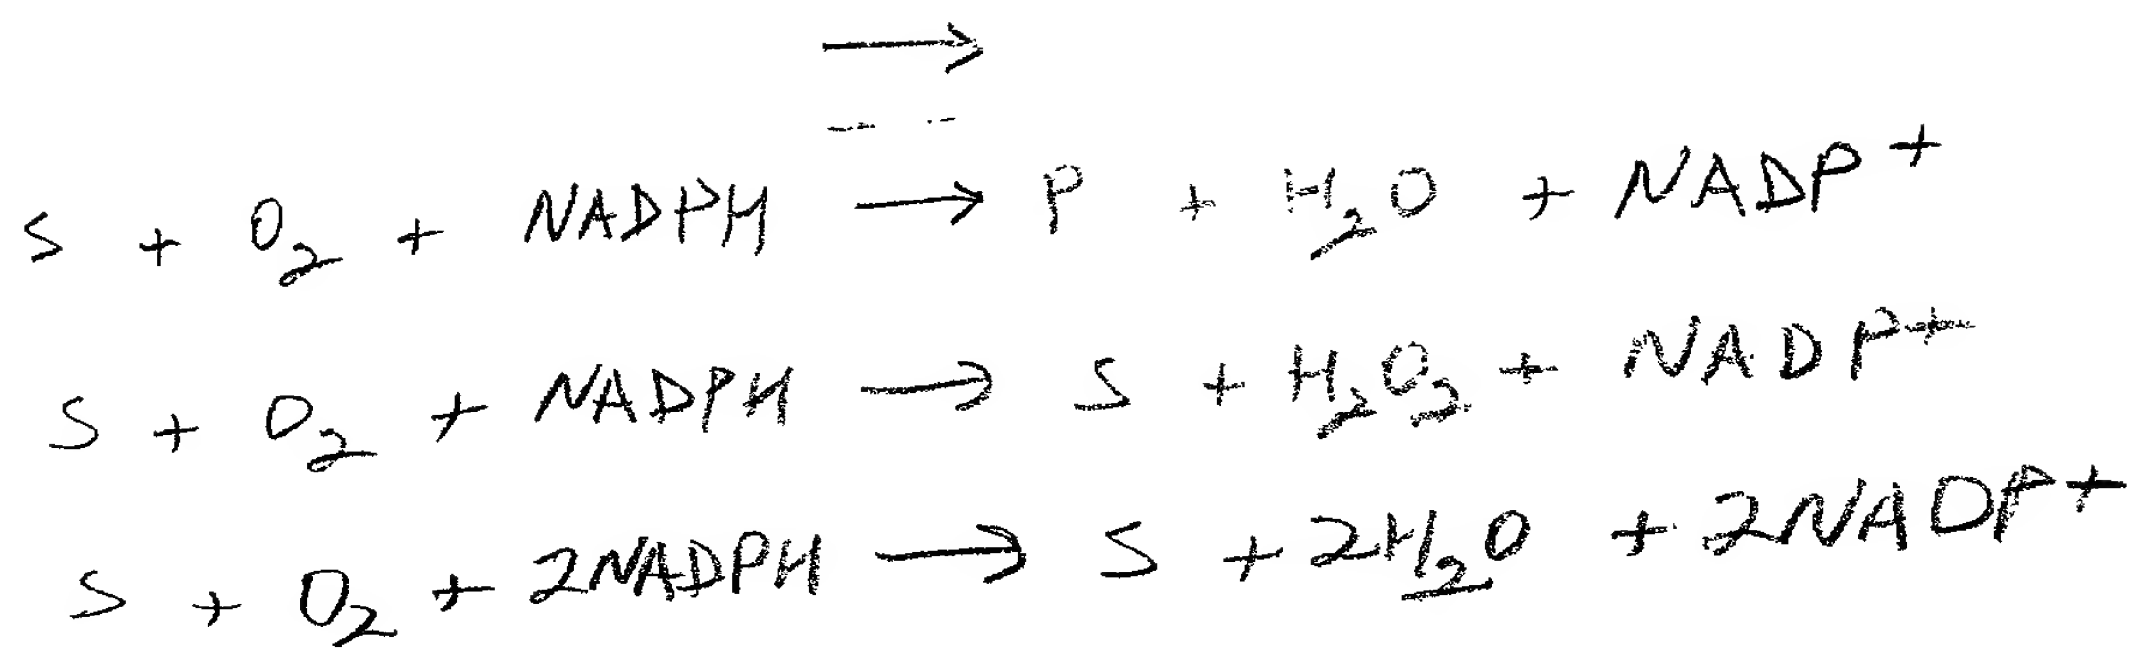 →
S + O₂ + NADPH → P + H₂O + NADP+
S + O₂ + NADPH → S + H₂O₂ + NADP+
S + O₂ + 2NADPH → S + 2H₂O + 2NADP+